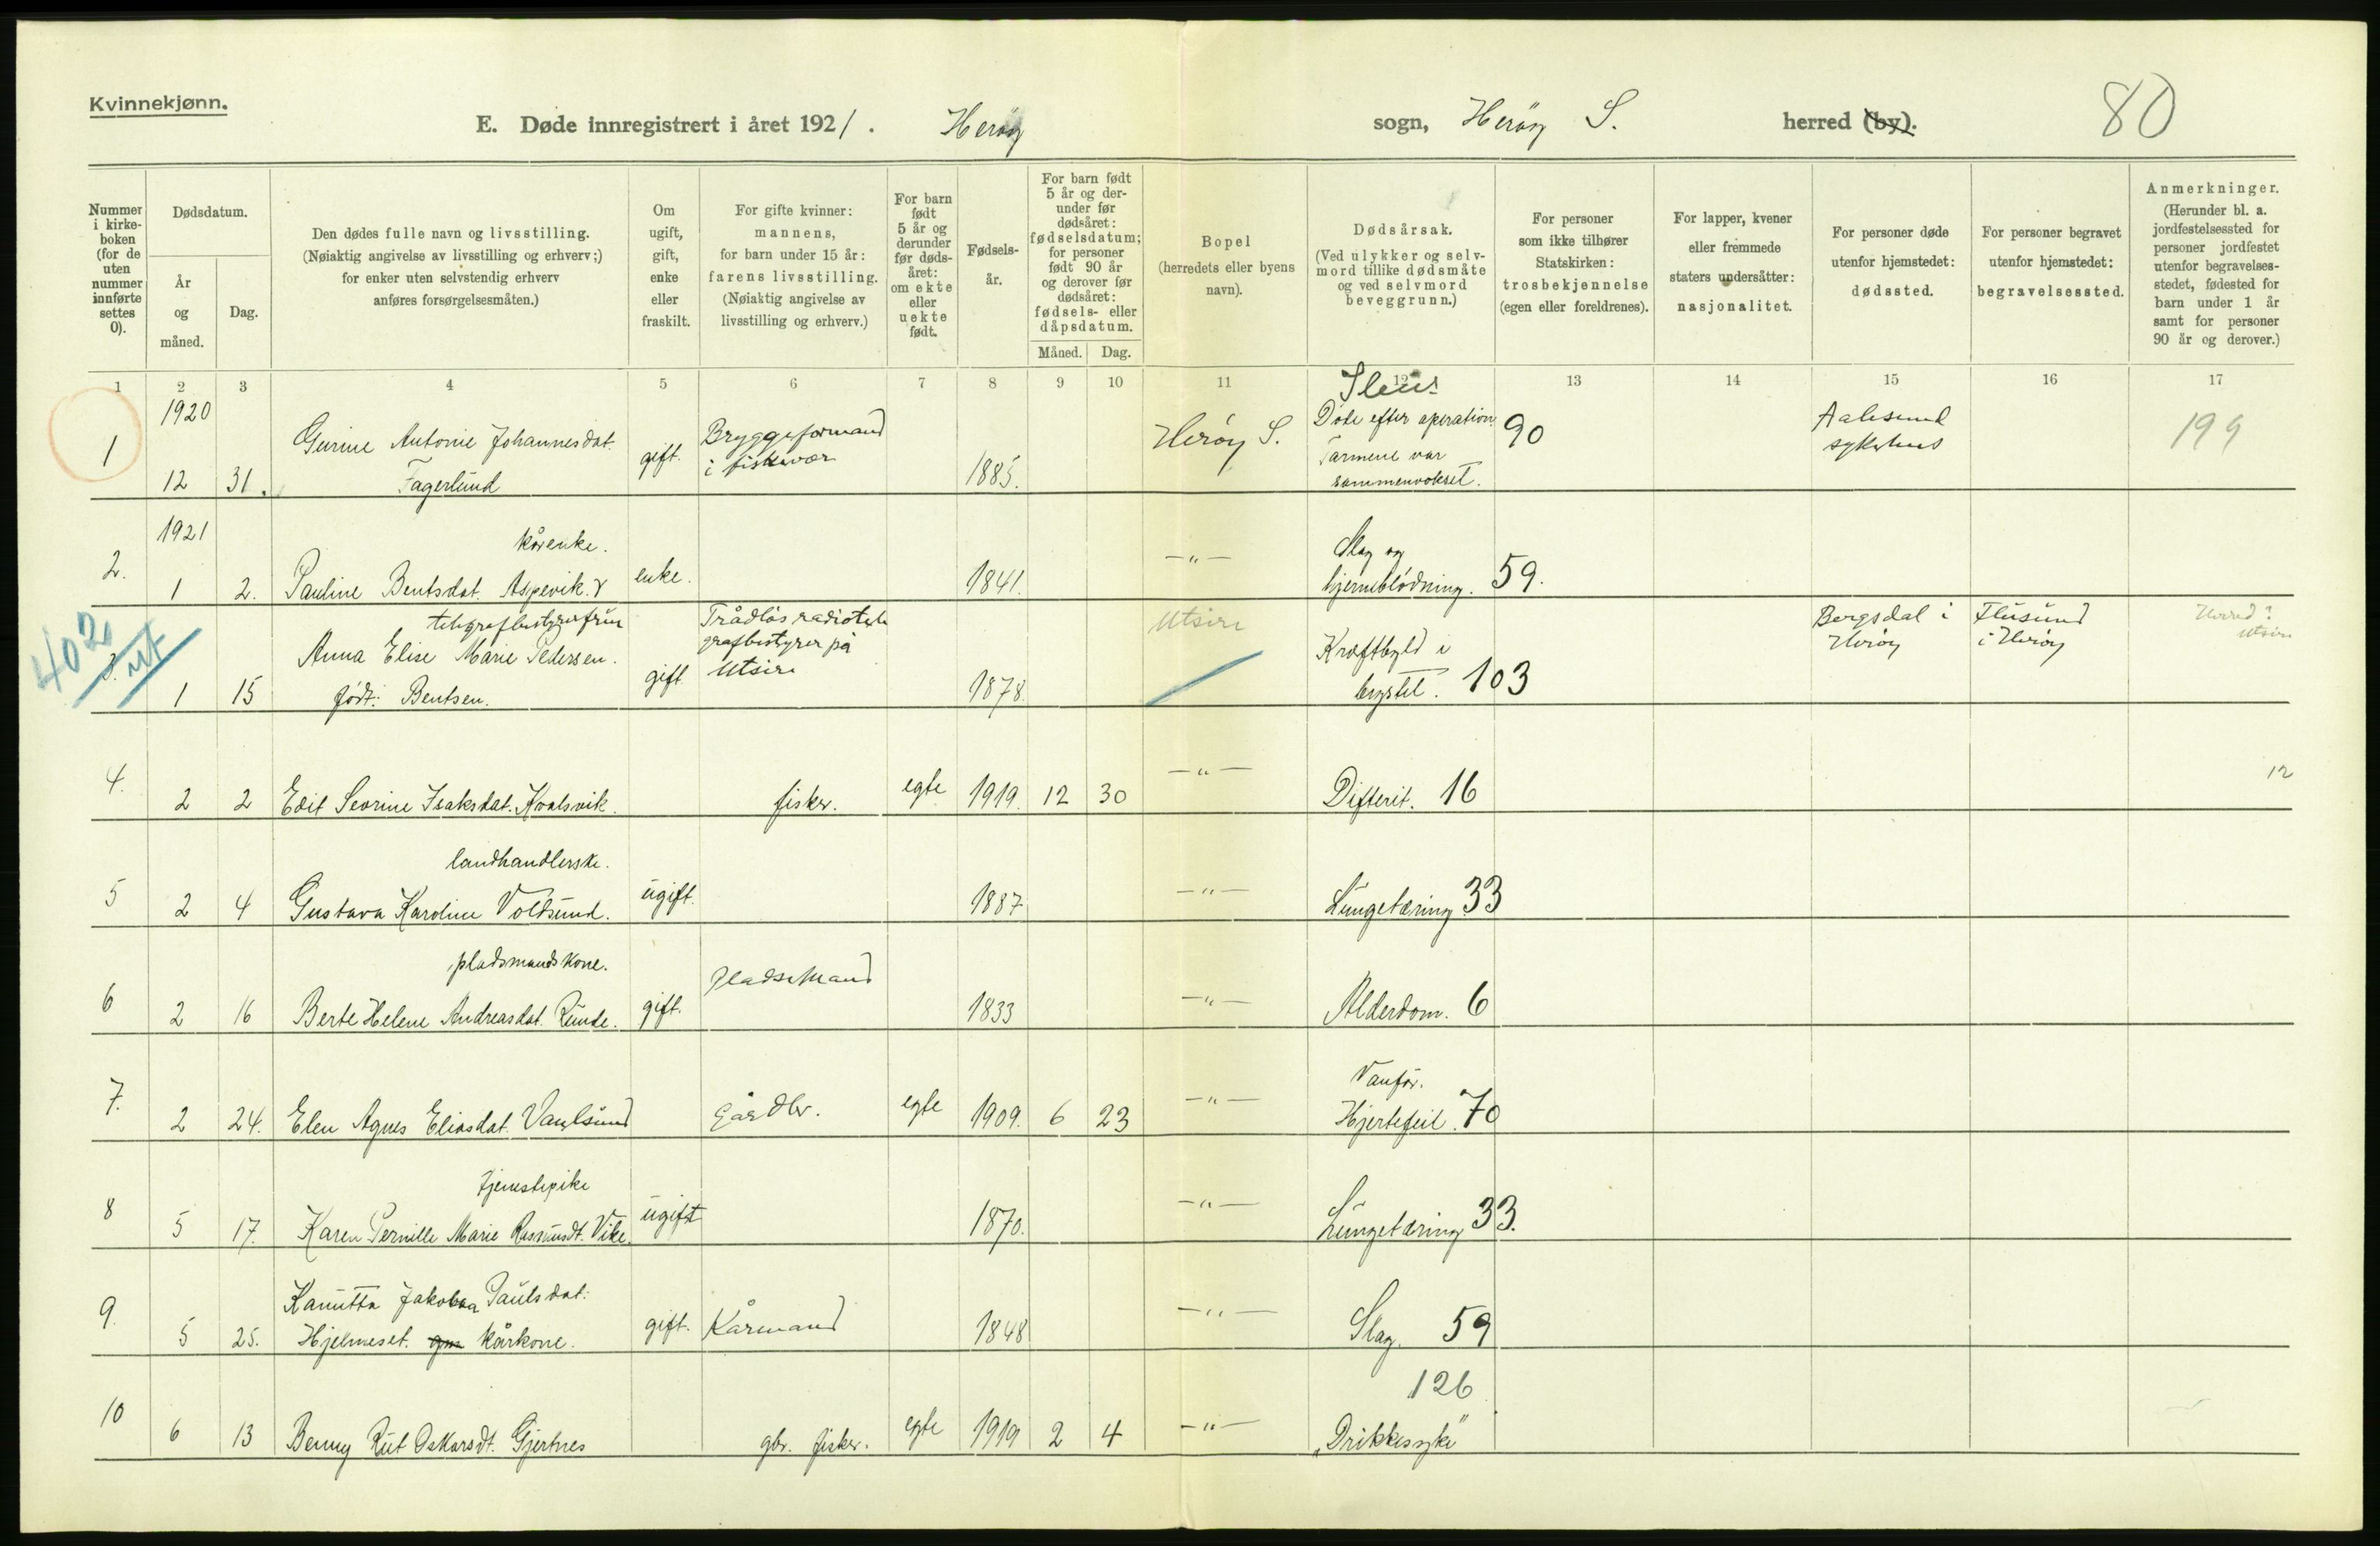 Kvinnekjønn.
E. Døde innregistrert i året 1921. Herøy sogn, Herøy S. herred (by).
80
Nummer i kirkeboken (for de uten nummer innførte settes 0).
Dødsdatum.
År og måned.
Dag.
Den dødes fulle navn og livsstilling.
(Nøiaktig angivelse av livsstilling og erhverv;)
for enker uten selvstendig erhverv
anføres forsørgelsesmåten.)
Om ugift, gift, enke eller fraskilt.
For gifte kvinner:
mannens,
for barn under 15 år:
farens livsstilling.
(Nøiaktig angivelse av
livsstilling og erhverv.)
For barn født 5 år og derunder før dødsåret: om ekte eller uekte født.
Fødselsår.
For barn født 5 år og derunder før dødsåret: fødselsdatum; for personer født 90 år og derover før dødsåret: fødsels- eller dåpsdatum.
Måned.
Dag.
Bopel
(herredets eller byens navn).
Dødsårsak.
(Ved ulykker og selvmord tillike dødsmåte og ved selvmord beveggrunn.)
For personer som ikke tilhører Statskirken: trosbekjennelse (egen eller foreldrenes).
For lapper, kvener eller fremmede staters undersåtter: nasjonalitet.
For personer døde utenfor hjemstedet: dødssted.
For personer begravet utenfor hjemstedet: begravelsessted.
Anmerkninger.
(Herunder bl. a. jordfestelsessted for personer jordfestet utenfor begravelsesstedet, fødested for barn under 1 år samt for personer 90 år og derover.)
1 2 3 4 5 6 7 8 9 10 11 12 13 14 15 16 17
1920
Ileus
1 12 31. Gurine Antonie Johannesdat. Fagerlund gift. Bryggeformand i fiskevær 1885. Herøy S. Døde efter operation. Tarmene var sammenvokset. 90 Aalesund sykehus 199
1921
kårenke.
2. 1 2. Pauline Bentsdat. Aspevik. enke. 1841. —"— Slag og hjerneblødning. 59.
402 ut
telegrafbestyrerfrue
3. 1 15 Anna Elise Marie Pedersen. født: Bentsen. gift Trådløs radiotelegrafbestyrer på Utsire 1878. Utsire Kræftbyld i brystet. 103 Bergsdal i Herøy Flusund i Herøy Herred? Utsire
4. 2 2 Edit Sevrine Isaksdat. Kvalsvik. fisker. egte 1919. 12 30 —"— Difterit. 16 12
landhandlerske.
5 2 4 Gustava Karoline Voldsund. ugift. 1887 —"— Lungetæring 33
pladsmandskone.
6 2 16 Berte Helene Andreasdat. Runde. gift. pladsemand 1833 —"— Alderdom. 6
Vanfør.
7. 2 24. Elen Agnes Eliasdat. gårdbr. egte 1909. 6 23 —"— Hjertefeil. 70
tjenestepike
8 5 17. Karen Pernille Marie Rasmusdt. Vike. ugift 1870. —"— Lungetæring 33.
9. 5 25. Kanutta Jakobea Paulsdat. Hjelmeset. kårkone. gift. Kårmand 1848 —"— Slag. 59
126
10 6 13 Benny Rut Oskarsdt. Gjertnes gbr. fisker. egte 1919 2 4 —"— "Drikkesyke"